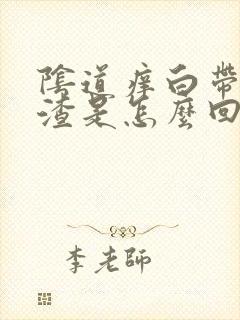 陰道痒白帶
渣是怎麼回
李老師